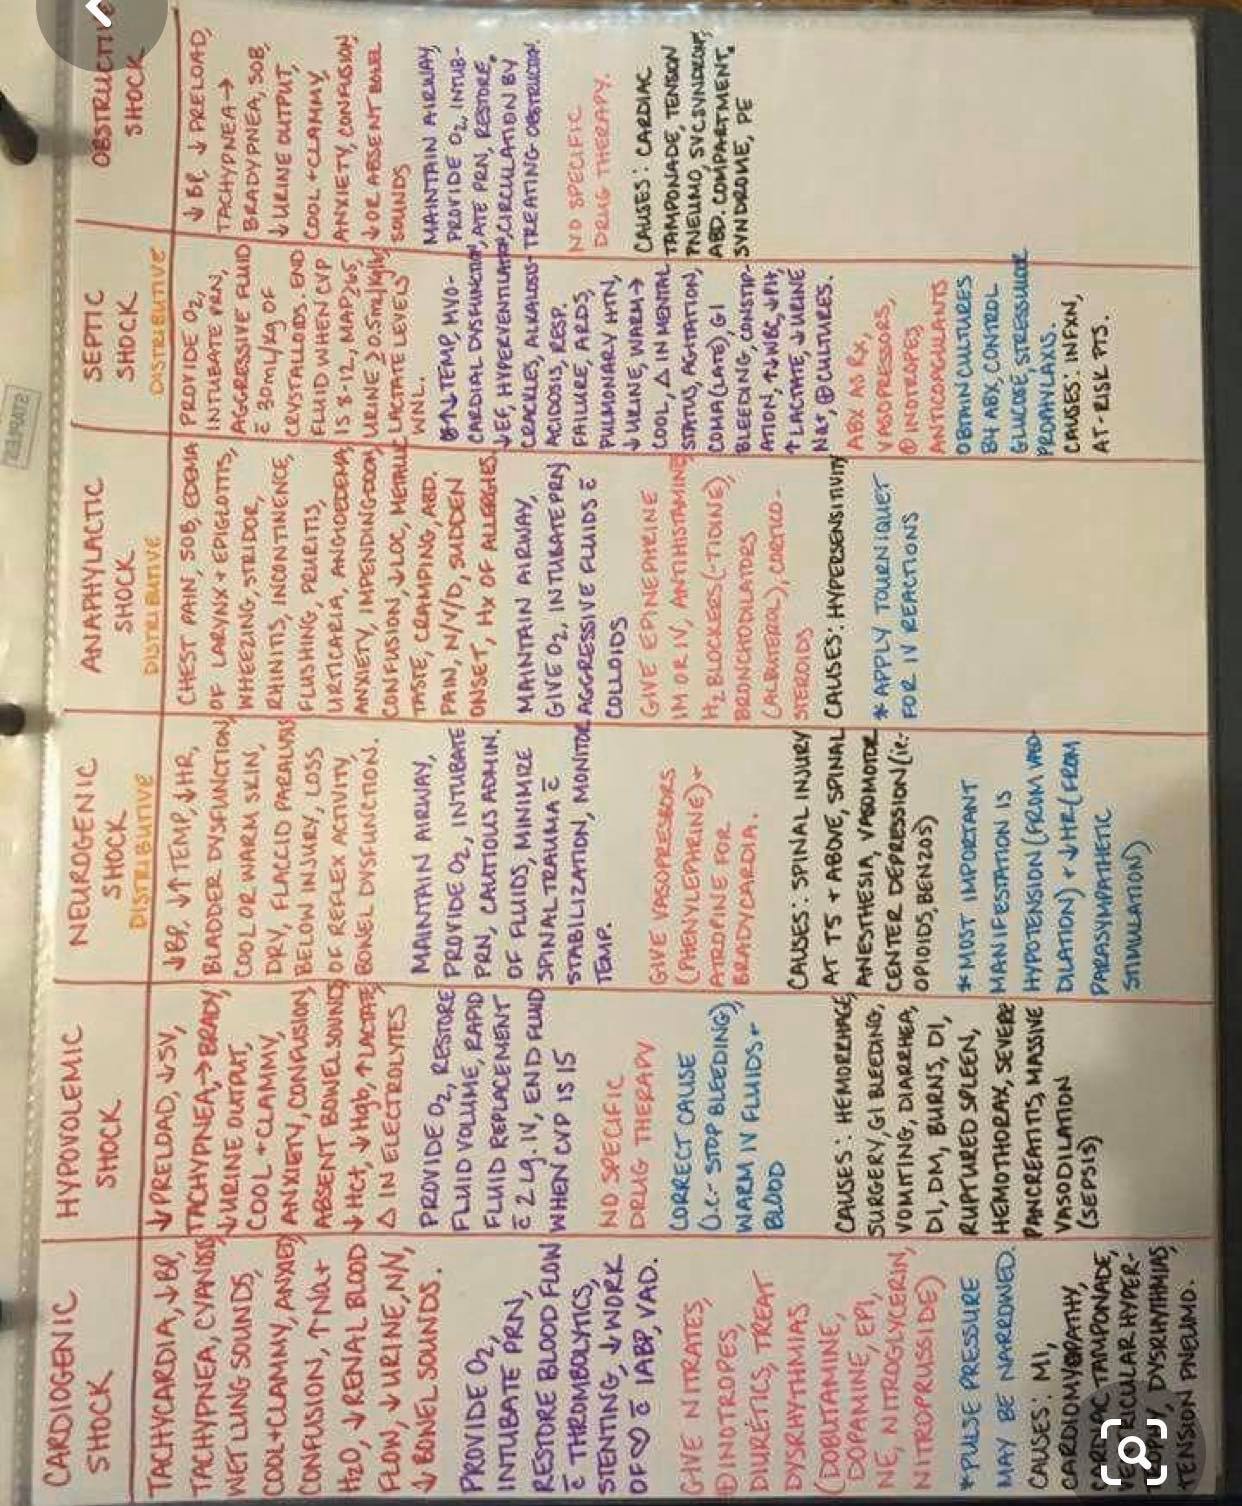 CARDIOGENIC
SHOCK
TACHYCARDIA, ↓BP,
TACHYPNEA, CYANOSIS
WET LUNG SOUNDS,
COOL+CLAMMY, ANXIETY
CONFUSION, ↑NA+
H2O, ↓RENAL BLOOD
FLOW, ↓URINE, N/V,
↓BOWEL SOUNDS.
PROVIDE O2,
INTUBATE PRN,
RESTORE BLOOD FLOW
c̄ THROMBOLYTICS,
STENTING, ↓WORK
OF ♡ c̄ IABP, VAD.
GIVE NITRATES,
⊕INOTROPES,
DIURETICS, TREAT
DYSRHYTHMIAS
(DOBUTAMINE,
DOPAMINE, EPI,
NE, NITROGLYCERIN,
NITROPRUSSIDE)
*PULSE PRESSURE
MAY BE NARROWED.
CAUSES: MI,
CARDIOMYOPATHY,
CARDIAC TAMPONADE,
VENTRICULAR HYPER-
DYSRHYTHMIAS,
TENSION PNEUMO.
HYPOVOLEMIC
SHOCK
↓PRELOAD, ↓SV,
TACHYPNEA,→BRADY,
↓URINE OUTPUT,
COOL+CLAMMY,
ANXIETY, CONFUSION,
ABSENT BOWEL SOUNDS
↓Hct, ↓Hgb, ↑LACTATE,
Δ IN ELECTROLYTES
PROVIDE O2, RESTORE
FLUID VOLUME, RAPID
FLUID REPLACEMENT
c̄ 2 Lg. IV, END FLUID
WHEN CVP IS 15
NO SPECIFIC
DRUG THERAPY
CORRECT CAUSE
(i.e.- STOP BLEEDING),
WARM IV FLUIDS+
BLOOD
CAUSES: HEMORRHAGE,
SURGERY, GI BLEEDING,
VOMITING, DIARRHEA,
DI, DM, BURNS, DI,
RUPTURED SPLEEN,
HEMOTHORAX, SEVERE
PANCREATITIS, MASSIVE
VASODILATION
(SEPSIS)
NEUROGENIC
SHOCK
DISTRIBUTIVE
↓BP, ↓↑TEMP, ↓HR,
BLADDER DYSFUNCTION,
COOL OR WARM SKIN,
DRY, FLACCID PARALYSIS
BELOW INJURY, LOSS
OF REFLEX ACTIVITY,
BOWEL DYSFUNCTION.
MAINTAIN AIRWAY,
PROVIDE O2, INTUBATE
PRN, CAUTIOUS ADMIN.
OF FLUIDS, MINIMIZE
SPINAL TRAUMA c̄
STABILIZATION, MONITOR
TEMP.
GIVE VASOPRESSORS
(PHENYLEPHRINE)+
ATROPINE FOR
BRADYCARDIA.
CAUSES: SPINAL INJURY
AT T5 + ABOVE, SPINAL
ANESTHESIA, VASOMOTOR
CENTER DEPRESSION (ie:-
OPIOIDS, BENZOS)
*MOST IMPORTANT
MANIFESTATION IS
HYPOTENSION (FROM VASO-
DILATION) + ↓HR (FROM
PARASYMPATHETIC
STIMULATION)
ANAPHYLACTIC
SHOCK
DISTRIBUTIVE
CHEST PAIN, SOB, EDEMA
OF LARYNX + EPIGLOTTIS,
WHEEZING, STRIDOR,
RHINITIS, INCONTINENCE,
FLUSHING, PRURITIS,
URTICARIA, ANGIOEDEMA,
ANXIETY, IMPENDING DOOM,
CONFUSION, ↓LOC, METALLIC
TASTE, CRAMPING, ABD.
PAIN, N/V/D, SUDDEN
ONSET, Hx OF ALLERGIES
MAINTAIN AIRWAY,
GIVE O2, INTUBATE PRN
AGGRESSIVE FLUIDS c̄
COLLOIDS
GIVE EPINEPHRINE
IM OR IV, ANTIHISTAMINE
H2 BLOCKERS (-TIDINE),
BRONCHODILATORS
(ALBUTEROL), CORTICO-
STEROIDS
CAUSES: HYPERSENSITIVITY
*APPLY TOURNIQUET
FOR IV REACTIONS
SEPTIC
SHOCK
DISTRIBUTIVE
PROVIDE O2,
INTUBATE PRN,
AGGRESSIVE FLUID
c̄ 30mL/kg OF
CRYSTALLOIDS. END
FLUID WHEN CVP
IS 8-12, MAP≥65,
URINE ≥0.5mL/kg/hr
LACTATE LEVELS
WNL.
↑↓TEMP, MYO-
CARDIAL DYSFUNCTION,
↓EF, HYPERVENTILATION,
CRACKLES, ALKALOSIS→
ACIDOSIS, RESP.
FAILURE, ARDS,
PULMONARY HTN,
↓URINE, WARM→
COOL, Δ IN MENTAL
STATUS, AGITATION,
COMA (LATE), GI
BLEEDING, CONSTIP-
ATION, ↑↓WBC, ↓Plt,
↑LACTATE, ↓URINE
Na+, ⊕CULTURES.
ABX AS Rx,
VASOPRESSORS,
⊕INOTROPES,
ANTICOAGULANTS
OBTAIN CULTURES
B4 ABX, CONTROL
GLUCOSE, STRESS ULCER
PROPHYLAXIS.
CAUSES: INFXN,
AT-RISK PTS.
OBSTRUCTIVE
SHOCK
↓BP, ↓PRELOAD,
TACHYPNEA→
BRADYPNEA, SOB,
↓URINE OUTPUT,
COOL+CLAMMY,
ANXIETY, CONFUSION,
↓OR ABSENT BOWEL
SOUNDS
MAINTAIN AIRWAY,
PROVIDE O2, INTUB-
ATE PRN, RESTORE
CIRCULATION BY
TREATING OBSTRUCTION.
NO SPECIFIC
DRUG THERAPY.
CAUSES: CARDIAC
TAMPONADE, TENSION
PNEUMO, SVC SYNDROME,
ABD. COMPARTMENT
SYNDROME, PE